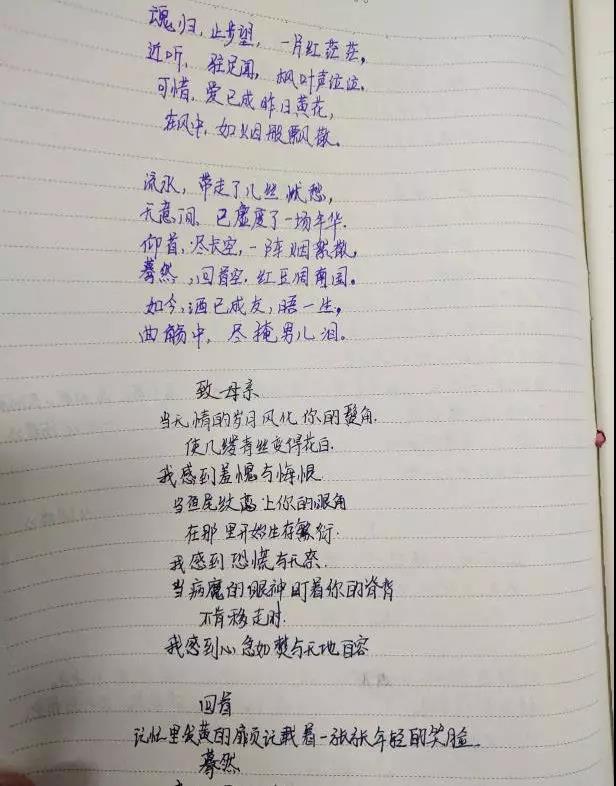 魂归，止步望，一片红茫茫，
近听，驻足闻，枫叶声泣泣。
可惜，爱已成昨日黄花，
在风中，如烟般飘散。
流水，带走了几丝忧愁，
无意间，已虚度了一场年华.
仰首，尽长空，一阵烟雾散，
蓦然，回首空，红豆凋南国。
如今，酒已成友，醉一生，
曲觞中，尽掩男儿泪。
致母亲
当无情的岁月风化你的鬓角.
使几缕青丝变得花白.
我感到羞愧与悔恨
当鱼尾纹爬上你的眼角
在那里开始生存繁衍.
我感到恐慌与无奈.
当病魔的眼神盯着你的脊背
不肯移走时.
我感到心急如焚与无地自容
回首
记忆里发黄的扉页记载着一张张年轻的笑脸.
蓦然